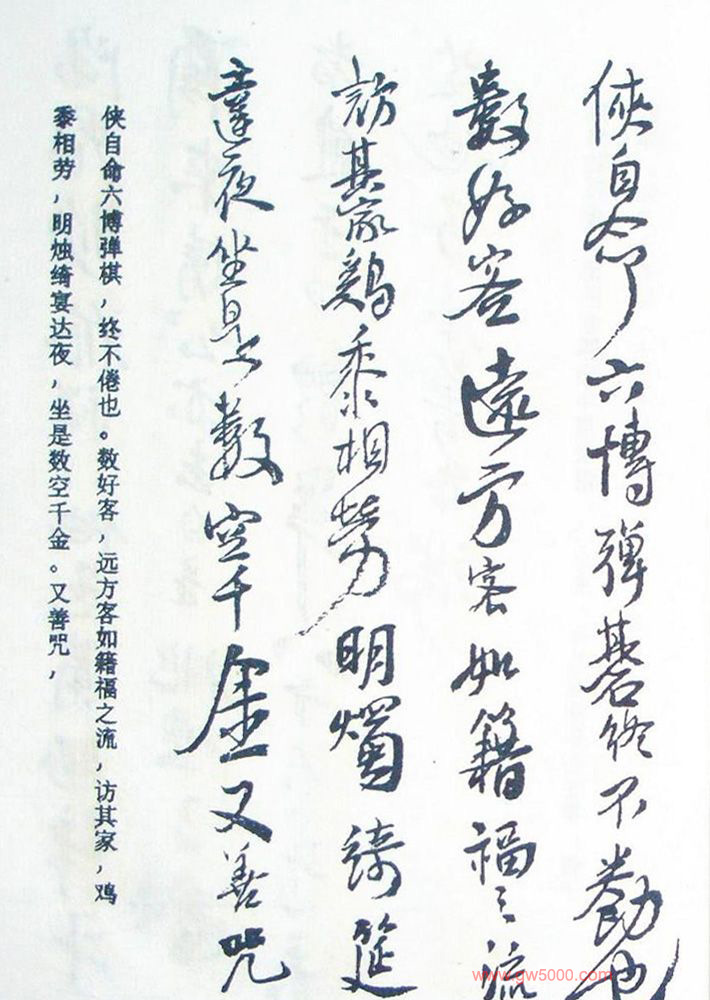 俠自命六博彈碁終不勌也
數好客遠方客如籍福之流
訪其家鷄黍相勞明燭綺筵
達夜坐是數空千金又善咒
侠自命六博弹棋，终不倦也。数好客，远方客如籍福之流，访其家，鸡
黍相劳，明烛绮宴达夜，坐是数空千金。又善咒，
www.gw5000.com